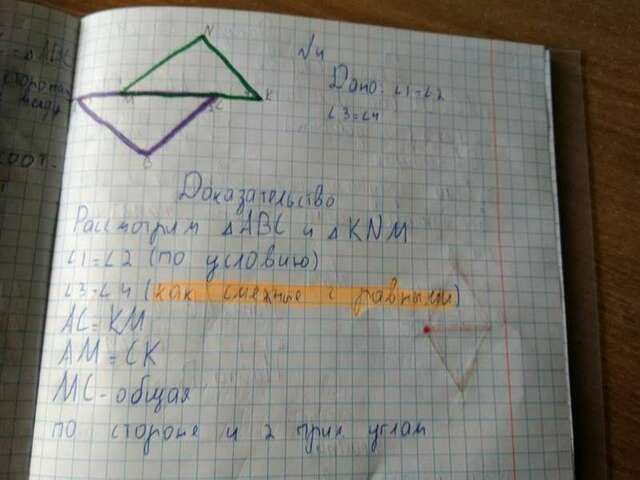 = △ABC
N
N4
сторона
Дано: ∠1=∠2
∠3=∠4
M
C
K
B
соот-
Доказательство
Рассмотрим △ABC и △KNM
∠1=∠2 (по условию)
∠3=∠4 (как смежные с равными)
AC=KM
AM=CK
MC-общая
по стороне и 2 прил углам